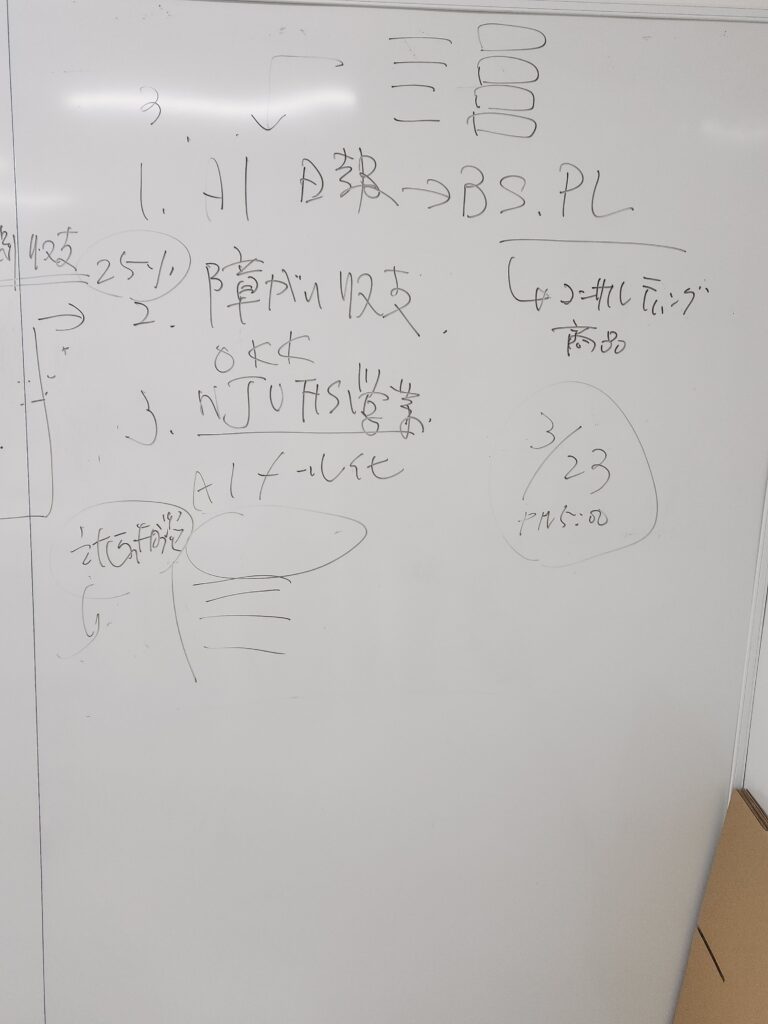 3.
1. AI 日報→BS.PL
収支 25%
→ 2. 障がい収支.
↳コンサルティング
商品
OKK
3. NJU 営業.
AIメール化
3/23
PM5:00